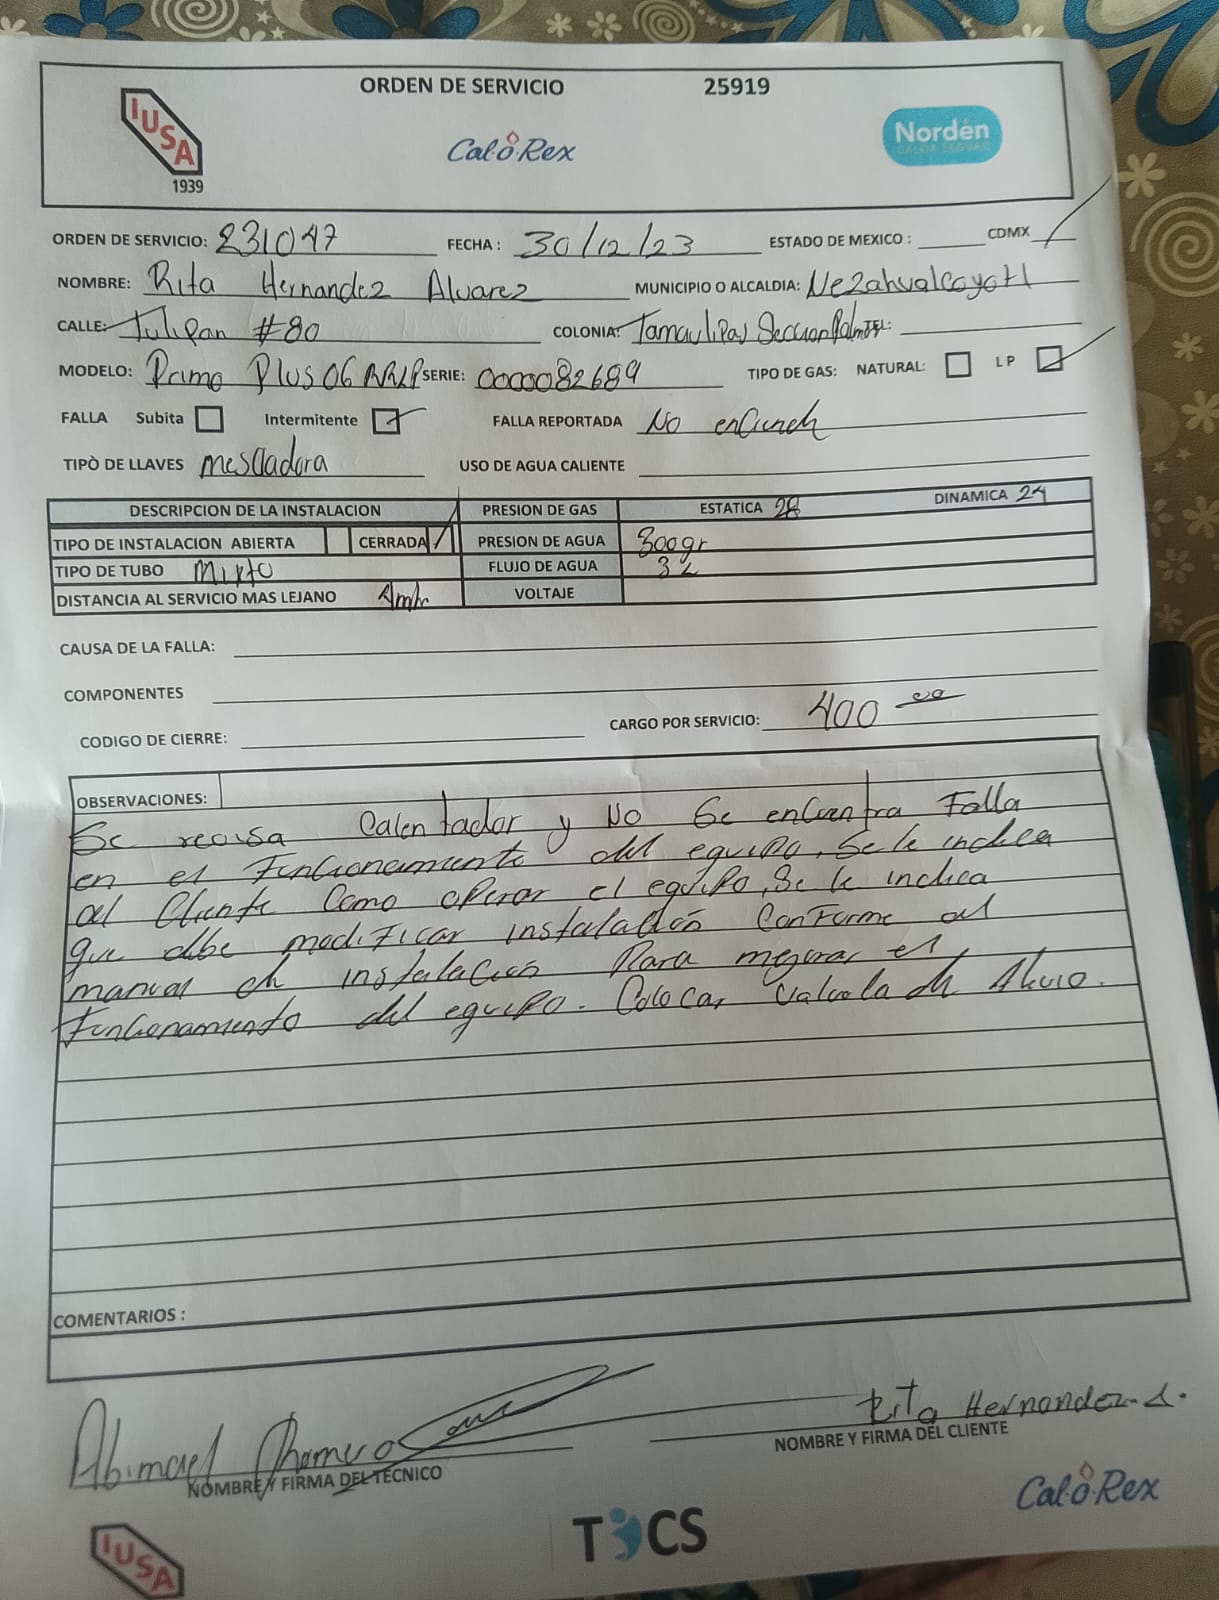 ORDEN DE SERVICIO 25919
IUSA 1939
Cal-o-Rex
Nordën
CALOR SEGURO
ORDEN DE SERVICIO: 231047 FECHA: 30/12/23 ESTADO DE MEXICO: CDMX
NOMBRE: Rita Hernandez Alvarez MUNICIPIO O ALCALDIA: Nezahualcoyotl
CALLE: Tulipan #80 COLONIA: Tamaulipas Seccion Palmas TEL:
MODELO: Primo Plus 06 SERIE: 0000082689 TIPO DE GAS: NATURAL: LP
FALLA Subita Intermitente FALLA REPORTADA No enciende
TIPÒ DE LLAVES mescladora USO DE AGUA CALIENTE
DESCRIPCION DE LA INSTALACION PRESION DE GAS ESTATICA 28 DINAMICA 24
TIPO DE INSTALACION ABIERTA CERRADA PRESION DE AGUA 300gr
TIPO DE TUBO Mixto FLUJO DE AGUA 3L
DISTANCIA AL SERVICIO MAS LEJANO VOLTAJE
CAUSA DE LA FALLA:
COMPONENTES
CODIGO DE CIERRE: CARGO POR SERVICIO: 400 00
OBSERVACIONES:
Se revisa Calentador y No Se encuentra Falla
en el Funcionamiento del equipo, Se le indica
al Cliente Como operar el equipo, Se le indica
que debe modificar instalación Conforme al
manual de instalación Para mejorar el
Funcionamiento del equipo. Colocar Valvula de Alivio.
COMENTARIOS :
Abimael Rita Hernandez. A.
NOMBRE Y FIRMA DEL TÉCNICO NOMBRE Y FIRMA DEL CLIENTE
IUSA TICS Cal-o-Rex